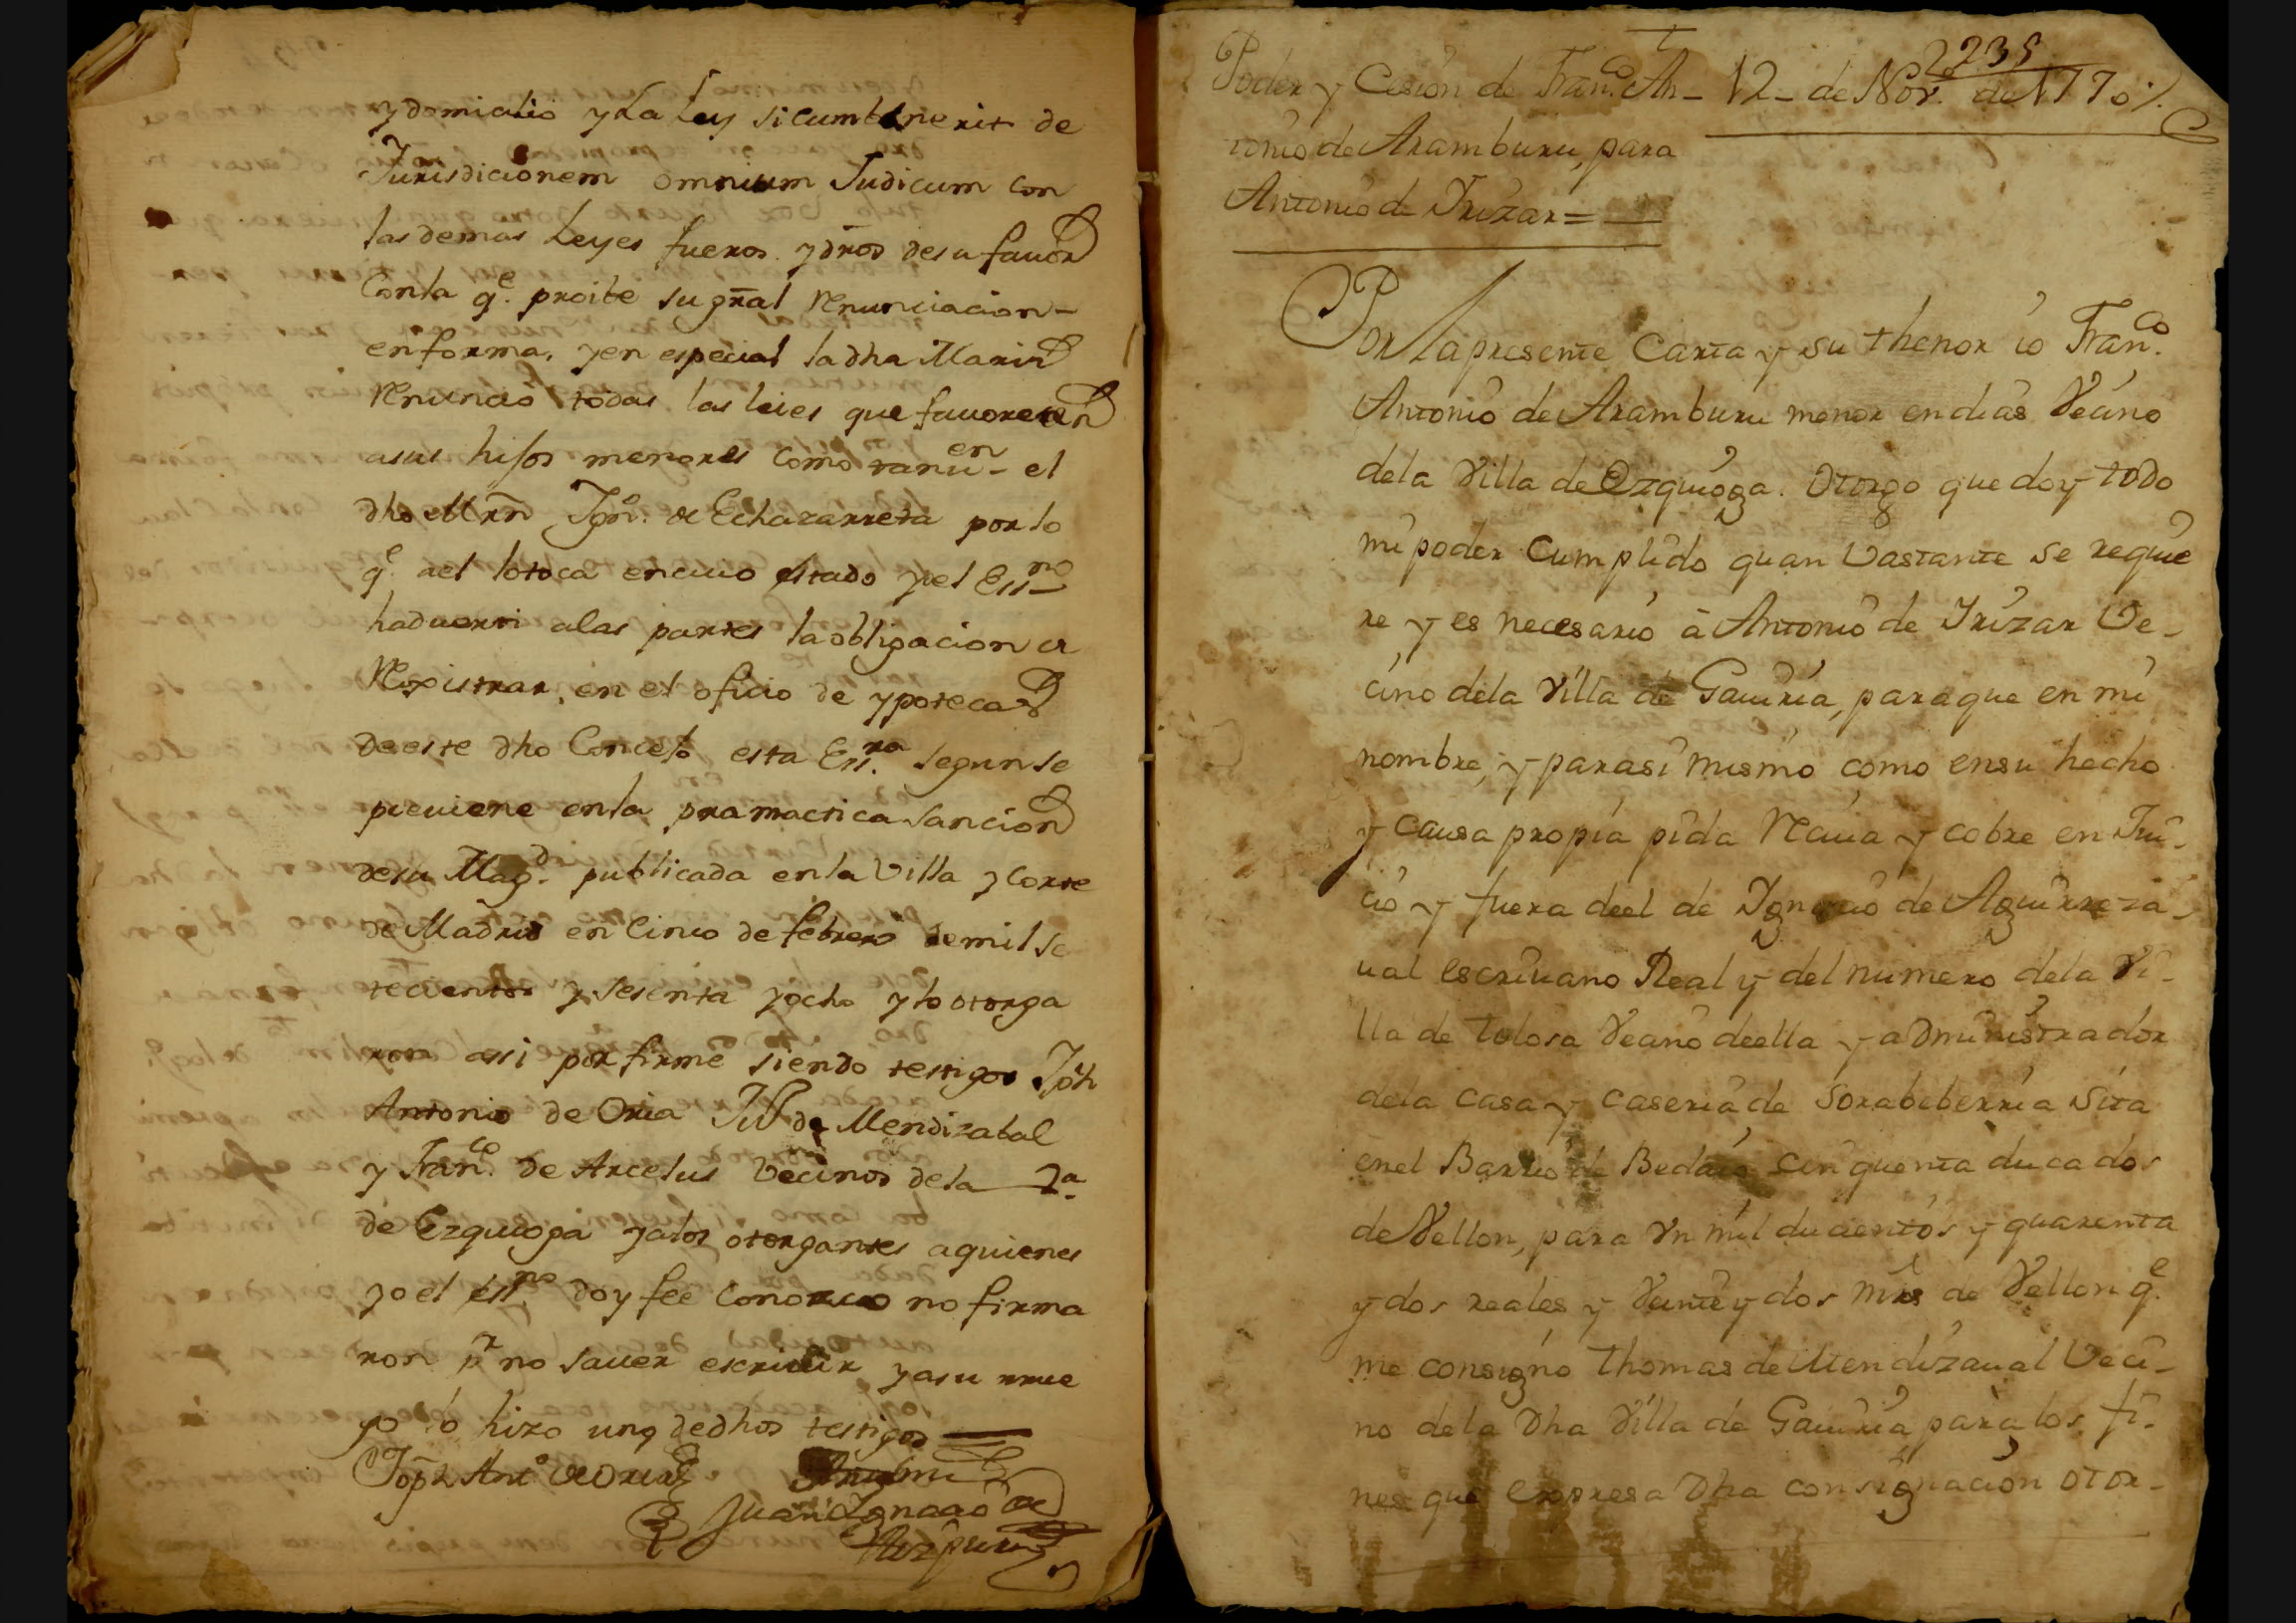 y domicilio y La Ley si cumbenerit de
Jurisdicionem omnium Judicum con
las demas Leyes fueros y dros de su favor
Con la qe. proibe su gral renunciacion
en forma, y en especial la dha Maria
renuncio todas las leies que favorecen
a sus hijos menores como tanuen el
dho Mrn Ign. de Echazarreta por lo
qe. ael lo toca en cuio estado y el Essno
ha duerti a las partes la obligacion de
Rexistrar, en el oficio de ypotecas
de este dho Concejo esta Essra. segun se
previene en la pramactica sancion
de su Magd. publicada en la Villa y Corte
de Madrid en Cinco de febrero de mil se
tecientos y sesenta y ocho y lo otorga
ron assi por firme siendo testigos Jph
Antonio de Oria Jn de Mendizabal
y Franco. de Arcelus Vecinos de la Va.
de Ezquioga y a los otorgantes a quienes
yo el essno. doy fee Conozco no firma
ron pr no saver escriuir y a su rrue
go lo hizo uno de dhos testigos =
Joph Anto de Oria
Juan Ignacio de
Aizpuru
2235
Poder y Cesion de Franco. An-
12 - de Nov. de 1770
tonio de Aramburu, para
Antonio de Irizar =
Por la presente Carta y su thenor io Franco.
Antonio de Aramburu menor en dias Vecino
de la Villa de Ezquioga. Otorgo que doy todo
mi poder Cumplido quan Vastante se requie
re y es necesario à Antonio de Irizar Ve-
cino de la Villa de Gauiria, para que en mi
nombre, y para si mismo como en su hecho
y causa propia pida Reciua y cobre en Jui-
cio y fuera de el de Ignacio de Aguirreza-
ual escriuano Real y del numero de la Vi-
lla de tolosa Vecino de ella y administrador
de la casa y caseria de Sorabeberria Sita
en el Barrio de Bedaio cinquenta ducados
de Vellon, para Vn mil ducientos y quarenta
y dos reales y Veinte y dos mrs de Vellon qe.
me consigno thomas de Mendizaual Veci-
no de la Dha Villa de Gauiria para los fi-
nes que expresa Dha consignacion otor-